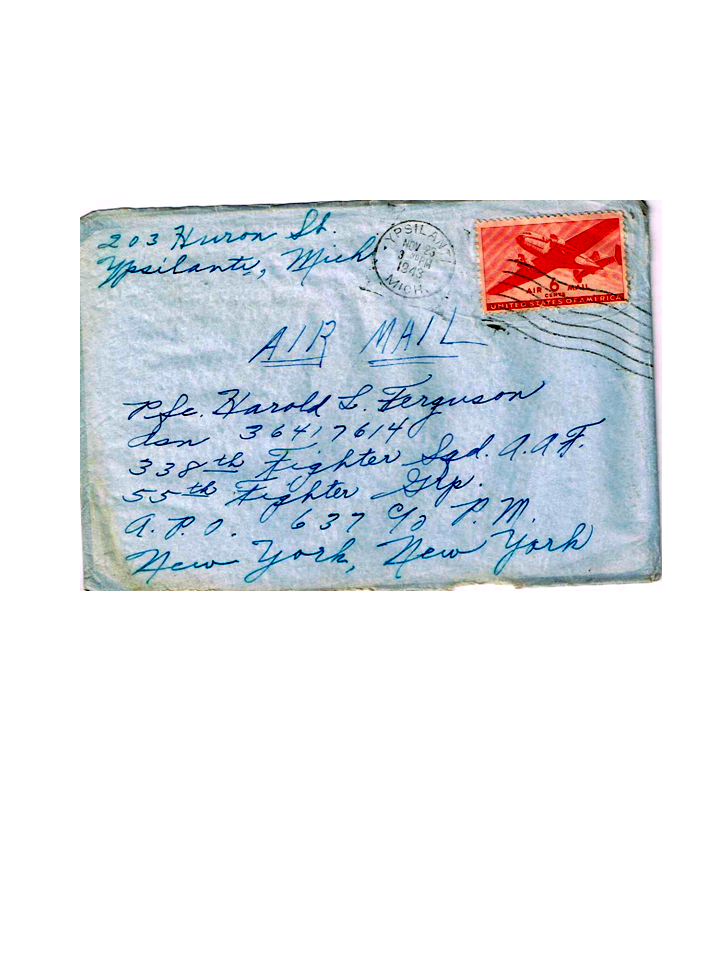 203 Huron St.
Ypsilanti, Mich
YPSILANTI
NOV
3 PM
1943
MICH.
AIR 6 MAIL
CENTS
UNITED STATES OF AMERICA
AIR MAIL
Pfc. Harold L. Ferguson
asn 36417614
338th Fighter Sqd. A.A.F.
55th Fighter Grp.
A.P.O. 637 c/o P.M.
New York, New York